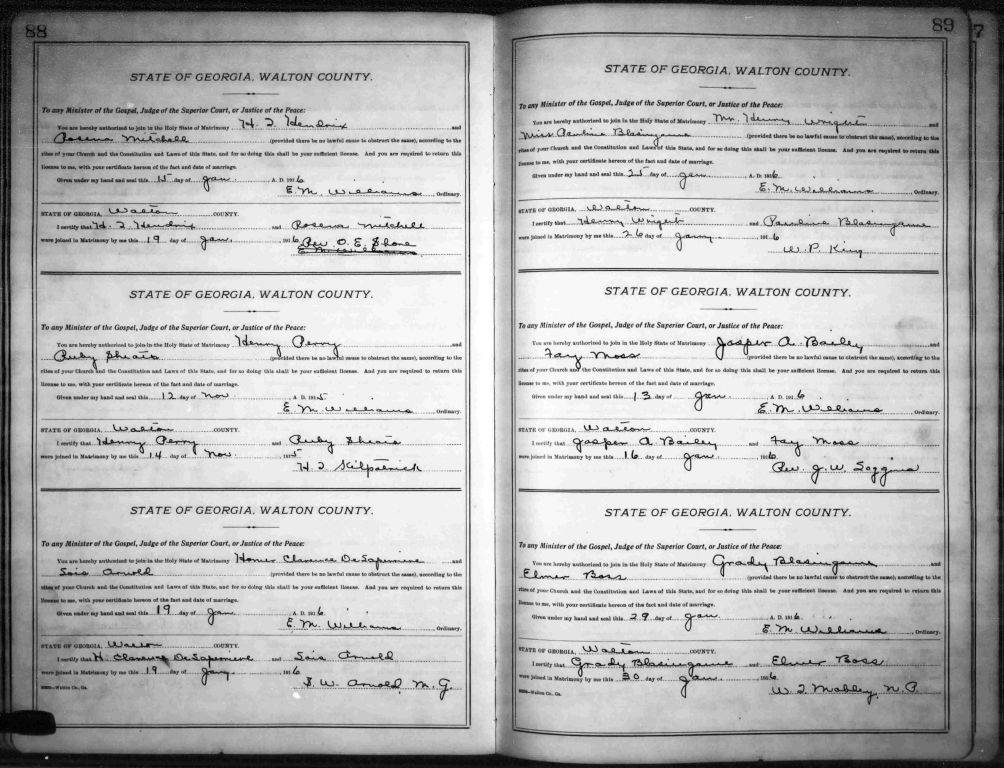 88
STATE OF GEORGIA, WALTON COUNTY.
To any Minister of the Gospel, Judge of the Superior Court, or Justice of the Peace:
You are hereby authorized to join in the Holy State of Matrimony H. T. Hendrix and
Rosena Mitchell (provided there be no lawful cause to obstruct the same), according to the
rites of your Church and the Constitution and Laws of this State, and for so doing this shall be your sufficient license. And you are required to return this
license to me, with your certificate hereon of the fact and date of marriage.
Given under my hand and seal this 15 day of Jan. A. D. 1916
E. M. Williams, Ordinary.
STATE OF GEORGIA, Walton COUNTY.
I certify that H. T. Hendrix and Rosena Mitchell
were joined in Matrimony by me this 19 day of Jan. , 1916 Rev O. E. Shone
E. M. Williams
STATE OF GEORGIA, WALTON COUNTY.
To any Minister of the Gospel, Judge of the Superior Court, or Justice of the Peace:
You are hereby authorized to join in the Holy State of Matrimony Henry Perry and
Ruby Sheats (provided there be no lawful cause to obstruct the same), according to the
rites of your Church and the Constitution and Laws of this State, and for so doing this shall be your sufficient license. And you are required to return this
license to me, with your certificate hereon of the fact and date of marriage.
Given under my hand and seal this 12 day of Nov A. D. 1915
E. M. Williams, Ordinary.
STATE OF GEORGIA, Walton COUNTY.
I certify that Henry Perry and Ruby Sheats
were joined in Matrimony by me this 14 day of Nov. , 1915
H. T. Kilpatrick
STATE OF GEORGIA, WALTON COUNTY.
To any Minister of the Gospel, Judge of the Superior Court, or Justice of the Peace:
You are hereby authorized to join in the Holy State of Matrimony Homer Clarence and
Arnold (provided there be no lawful cause to obstruct the same), according to the
rites of your Church and the Constitution and Laws of this State, and for so doing this shall be your sufficient license. And you are required to return this
license to me, with your certificate hereon of the fact and date of marriage.
Given under my hand and seal this 19 day of Jan A. D. 1916
E. M. Williams, Ordinary.
STATE OF GEORGIA, Walton COUNTY.
I certify that H. Clarence and Arnold
were joined in Matrimony by me this 19 day of Jany. , 1916
S. W. Arnold, M. G.
89
STATE OF GEORGIA, WALTON COUNTY.
To any Minister of the Gospel, Judge of the Superior Court, or Justice of the Peace:
You are hereby authorized to join in the Holy State of Matrimony Mr. Henry Wright and
Miss Pauline Blasingame (provided there be no lawful cause to obstruct the same), according to the
rites of your Church and the Constitution and Laws of this State, and for so doing this shall be your sufficient license. And you are required to return this
license to me, with your certificate hereon of the fact and date of marriage.
Given under my hand and seal this 25 day of Jan A. D. 1916
E. M. Williams, Ordinary.
STATE OF GEORGIA, Walton COUNTY.
I certify that Henry Wright and Pauline Blasingame
were joined in Matrimony by me this 26 day of Jany , 1916
W. P. King
STATE OF GEORGIA, WALTON COUNTY.
To any Minister of the Gospel, Judge of the Superior Court, or Justice of the Peace:
You are hereby authorized to join in the Holy State of Matrimony Jasper A. Bailey and
Fay Moss (provided there be no lawful cause to obstruct the same), according to the
rites of your Church and the Constitution and Laws of this State, and for so doing this shall be your sufficient license. And you are required to return this
license to me, with your certificate hereon of the fact and date of marriage.
Given under my hand and seal this 13 day of Jan. A. D. 1916
E. M. Williams, Ordinary.
STATE OF GEORGIA, Walton COUNTY.
I certify that Jasper A Bailey and Fay Moss
were joined in Matrimony by me this 16 day of Jan , 1916
Rev. J. W. Soggins
STATE OF GEORGIA, WALTON COUNTY.
To any Minister of the Gospel, Judge of the Superior Court, or Justice of the Peace:
You are hereby authorized to join in the Holy State of Matrimony Grady Blasingame and
Elmer Boss (provided there be no lawful cause to obstruct the same), according to the
rites of your Church and the Constitution and Laws of this State, and for so doing this shall be your sufficient license. And you are required to return this
license to me, with your certificate hereon of the fact and date of marriage.
Given under my hand and seal this 29 day of Jan A. D. 1916
E. M. Williams, Ordinary.
STATE OF GEORGIA, Walton COUNTY.
I certify that Grady Blasingame and Elmer Boss
were joined in Matrimony by me this 30 day of Jan , 1916
W. T. Mobley, N. P.
7